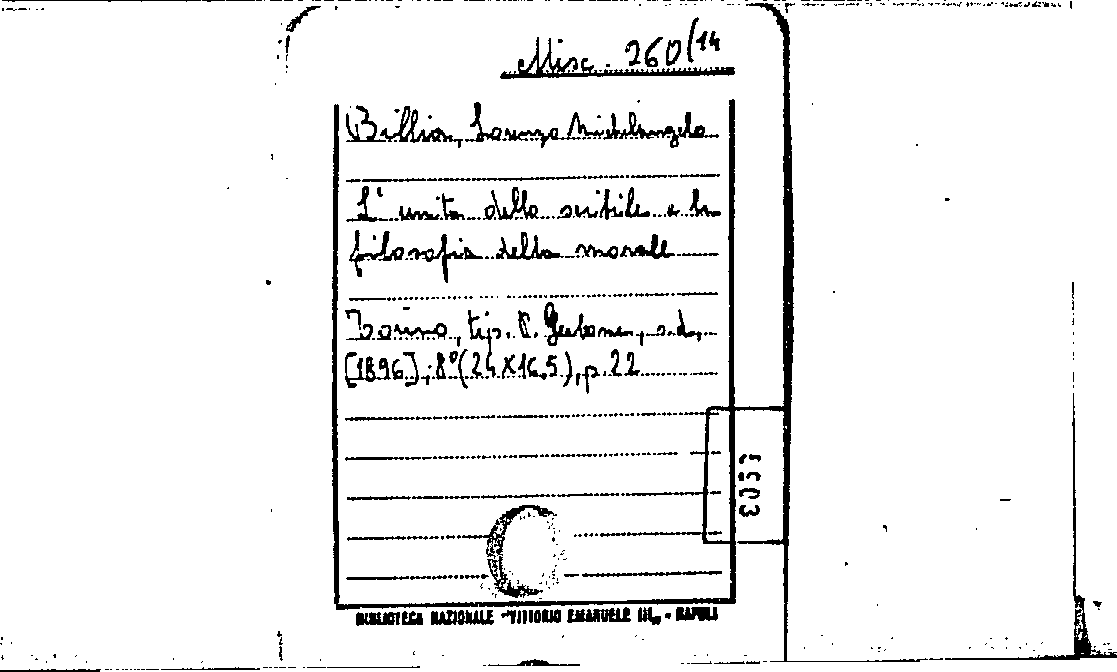 Misc. 260/14
Billia, Lorenzo Michelangelo
L'unità dello scibile e la
filosofia della morale
Torino, tip. P. Gerbone, s.d.,
[1896]; 8º (24x16,5), p. 22
BIBLIOTECA NAZIONALE "VITTORIO EMANUELE III" - NAPOLI